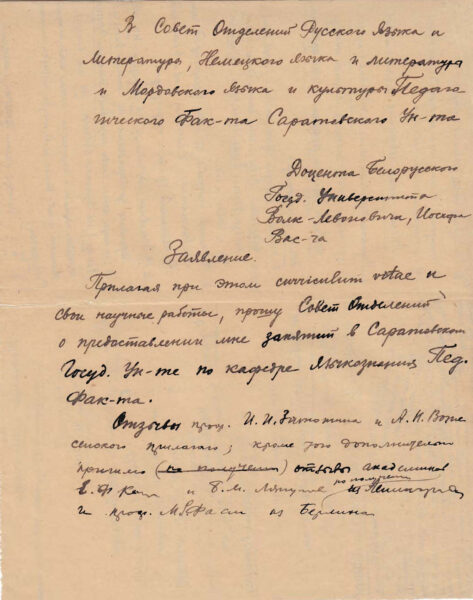 В Совет Отделений Русского Языка и
Литературы, Немецкого Языка и литературы
и Мордовского Языка и культуры Педаго
гического Фак-та Саратовского Ун-та
Доцента Белорусского
Госуд. Университета
Волк-Левоновича, Иосифа
Вас-ча
Заявление.
Прилагая при этом curriculum vitae и
свои научные работы, прошу Совет Отделений
о предоставлении мне занятий в Саратовском
Госуд. Ун-те по кафедре Языкознания Пед.
Фак-та.
Отзывы проф. И. И. и А. Н. Возне
сенского прилагаю; кроме того дополнительно
пришлю (по получении) отзывы академиков
по получении
Е. Ф. и Б. М. Ляпунова из Ленинграда
и проф. из Берлина